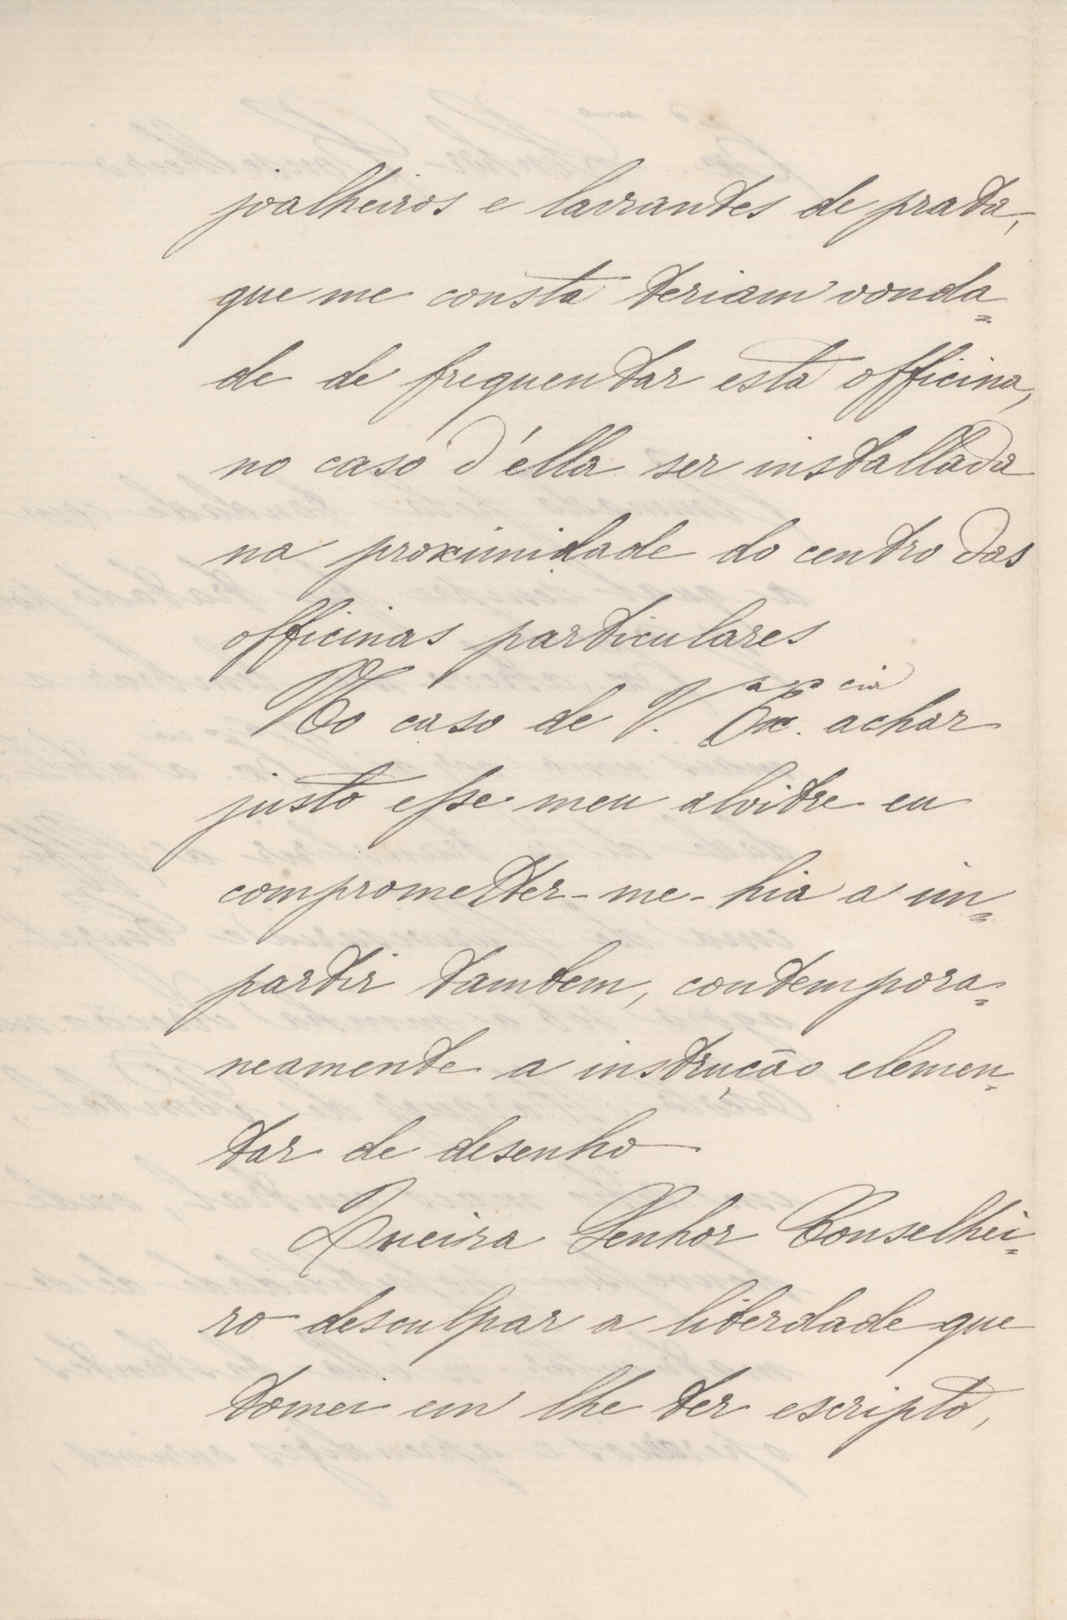 joalheiros e lavrantes de prata,
que me consta teriam vonta=
de de frequentar esta officina,
no caso d'élla ser installada
na proximidade do centro das
officinas particulares
No caso de V.ª Ex.cia achar
justo esse meu alvitre eu
comprometter-me-hia a im=
partir tambem, contempora=
neamente a instrução elemen=
tar de desenho
Queira Senhor Conselhei=
ro desculpar a liberdade que
tomei em lhe ter escripto,